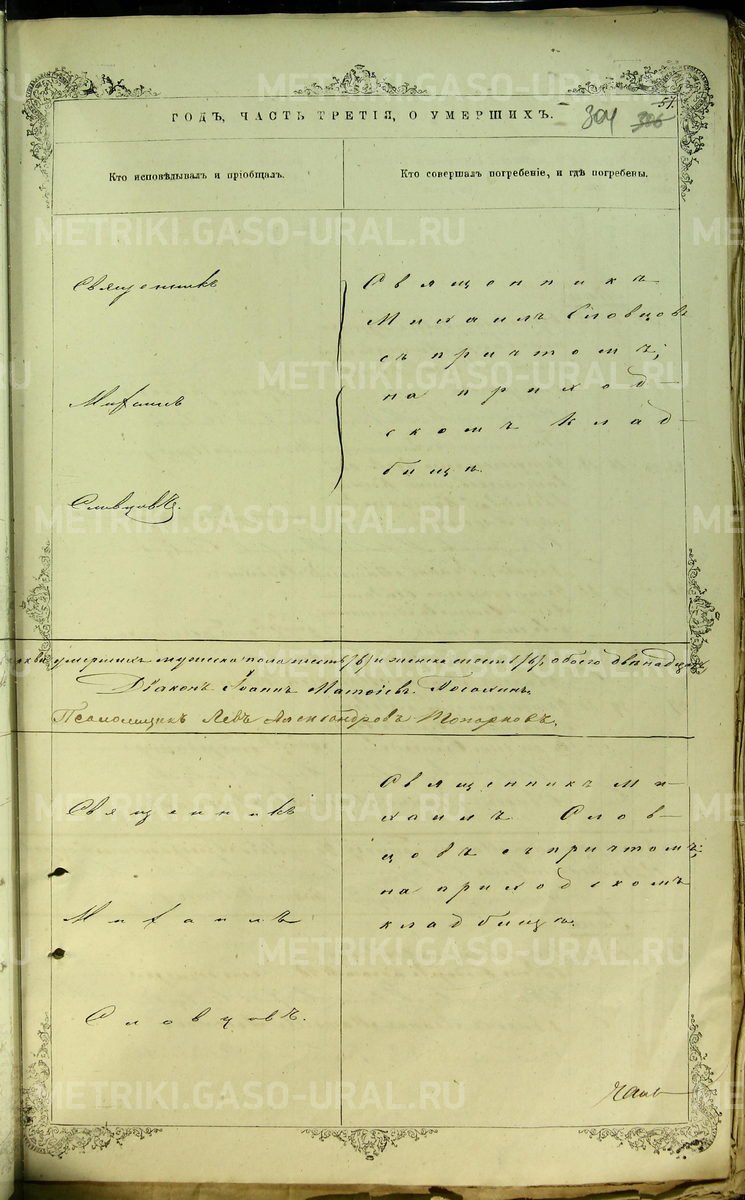 ГОДЪ, ЧАСТЬ ТРЕТІЯ, О УМЕРШИХЪ.
304
51
Кто исповѣдывалъ и пріобщалъ.
Кто совершалъ погребеніе, и гдѣ погребены.
Священникъ
Михаилъ
Словцовъ.
Священникъ
Михаилъ Словцовъ
съ причтомъ;
на приход-
скомъ клад-
бищѣ.
умершихъ мужеска пола шесть /6/ и женска шесть /6/, обоего двѣнадцать
Діаконъ Іоаннъ
Псаломщикъ Левъ Александровъ Топорковъ.
Священникъ
Михаилъ
Словцовъ.
Священникъ Ми-
хаилъ Слов-
цовъ съ причтомъ;
на приходскомъ
кладбищѣ.
METRIKI.GASO-URAL.RU